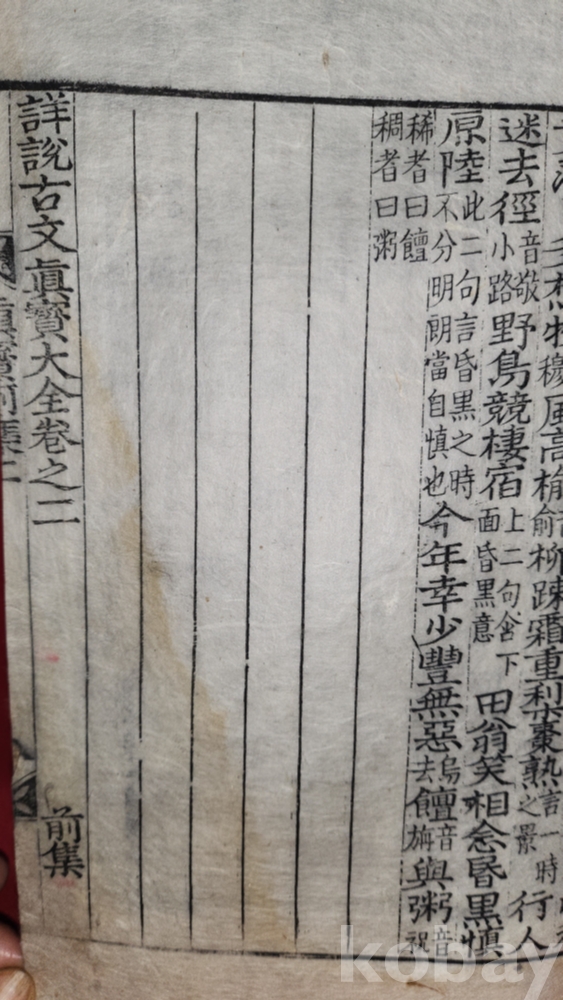 風高榆柳踈霜重梨棗熟言一時之景行人
迷去徑音敬小路野鳥競棲宿上二句含下面昏黑意田翁笑相念昏黑慎
原陸此二句言昏黑之時不分明朗當自慎也今年幸少豐無惡烏去饘音旃與粥音祝
稀者曰饘稠者曰粥
詳說古文眞寶大全卷之二 前集
眞寶前集二
kobay